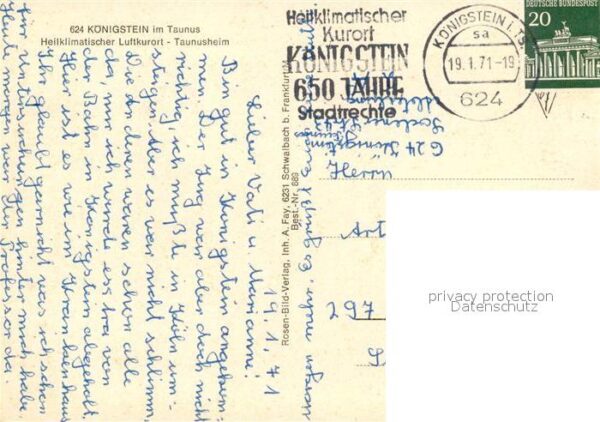 624 KÖNIGSTEIN im Taunus
Heilklimatischer Luftkurort - Taunusheim
Heilklimatischer
Kurort
KÖNIGSTEIN
650 JAHRE
Stadtrechte
KÖNIGSTEIN i. TS
sa
19.1.71-19
624
DEUTSCHE BUNDESPOST
20
Rosen-Bild-Verlag, Inh. A. Fay, 6231 Schwalbach b. Frankfurt
Best.-Nr. 869
19.1.71
Lieber Vati u. Marianne!
Bin gut in Königstein angekom-
men. Der Zug war aber doch nicht
richtig, ich mußte in Köln um-
steigen. Aber es war nicht schlimm.
Die anderen waren schon alle
da, nur ich wurde extra von
der Bahn in Königstein abgeholt.
Hier ist es wie im Krankenhaus
Ihr glaubt garnicht was ich schon
für Untersuchungen hinter mich habe.
Heute morgen war der Professor da.
morgen mehr. Es grüßt
624 Königstein
Taunus
Herrn
Art
297
privacy protection
Datenschutz